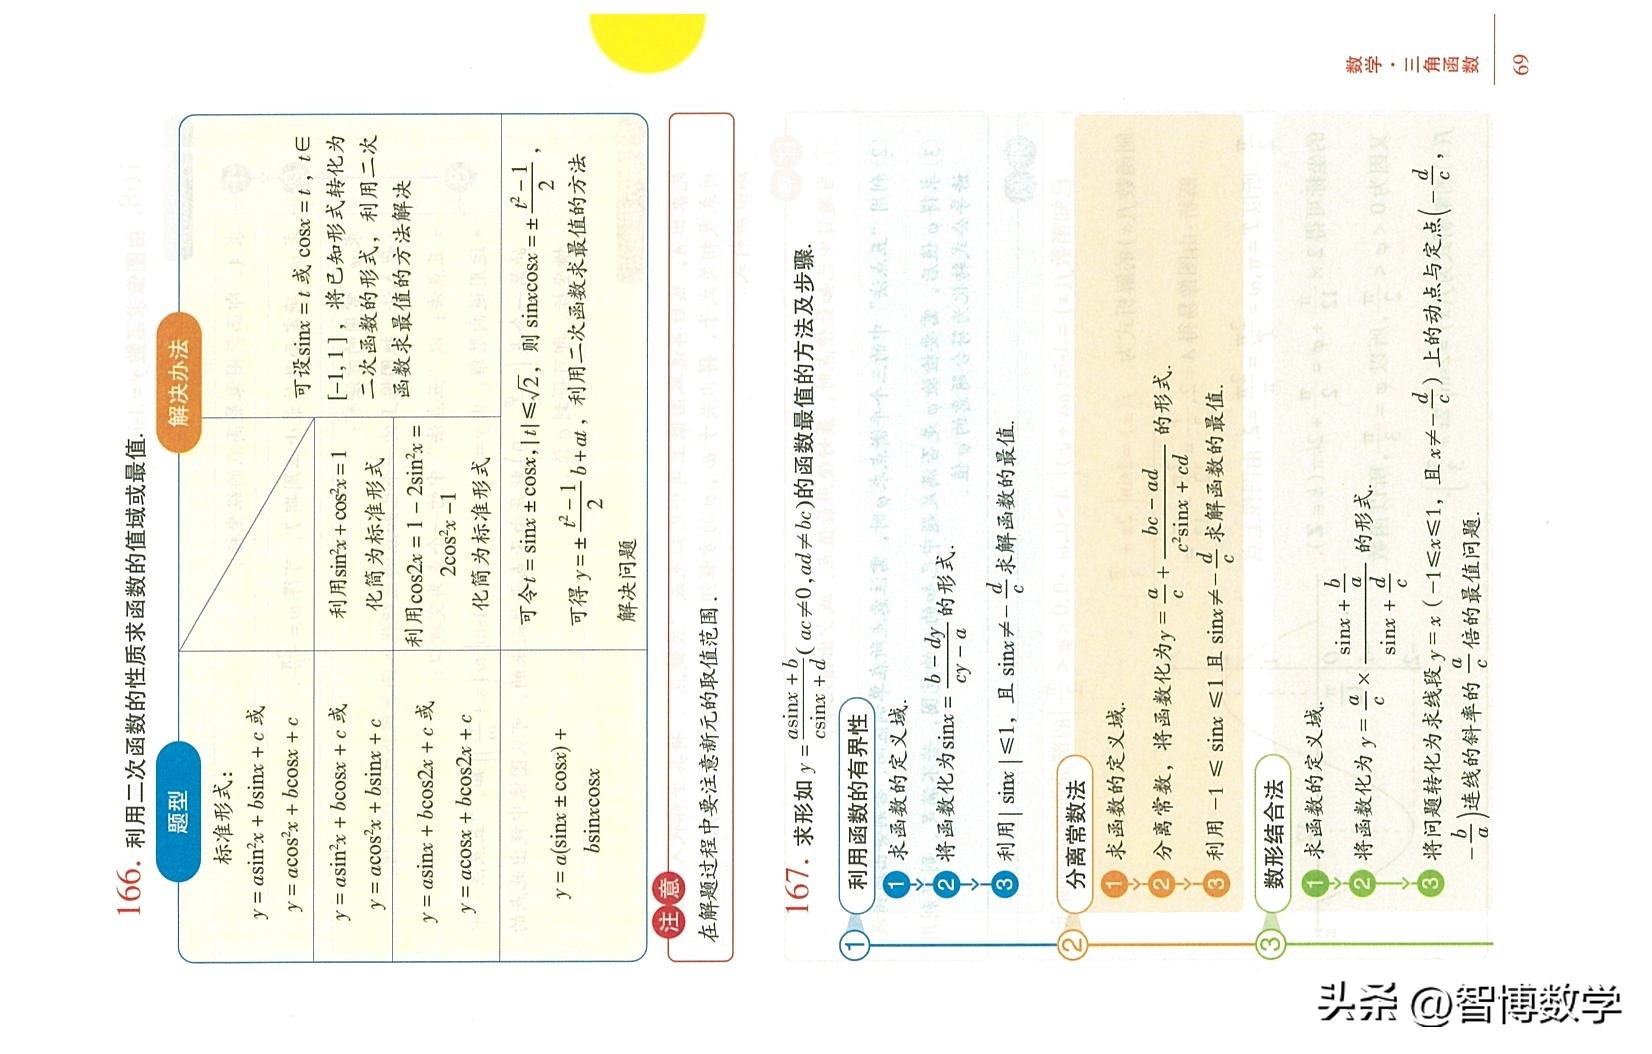 数学·三角函数
69
166. 利用二次函数的性质求函数的值域或最值.
题型
解决办法
标准形式：
y=asin²x+bsinx+c 或
y=acos²x+bcosx+c
y=asin²x+bcosx+c 或
y=acos²x+bsinx+c
利用sin²x+cos²x=1
化简为标准形式
y=asinx+bcos2x+c 或
y=acosx+bcos2x+c
利用cos2x=1-2sin²x=
2cos²x-1
化简为标准形式
可设sinx=t 或 cosx=t，t∈
[-1,1]，将已知形式转化为
二次函数的形式，利用二次
函数求最值的方法解决
y=a(sinx±cosx)+
bsinxcosx
可令t=sinx±cosx,|t|≤√2，则 sinxcosx=±(t²-1)/2，
可得 y=±(t²-1)/2 b+at，利用二次函数求最值的方法
解决问题
注意
在解题过程中要注意新元的取值范围.
167. 求形如 y=(asinx+b)/(csinx+d)(ac≠0,ad≠bc)的函数最值的方法及步骤.
1 利用函数的有界性
1 求函数的定义域.
2 将函数化为sinx=(b-dy)/(cy-a)的形式.
3 利用|sinx|≤1，且 sinx≠-d/c求解函数的最值.
2 分离常数法
1 求函数的定义域.
2 分离常数，将函数化为y=a/c+(bc-ad)/(c²sinx+cd)的形式.
3 利用 -1≤sinx≤1且sinx≠-d/c求解函数的最值.
3 数形结合法
1 求函数的定义域.
2 将函数化为 y=a/c×(sinx+b/a)/(sinx+d/c)的形式.
3 将问题转化为求线段 y=x(-1≤x≤1，且 x≠-d/c)上的动点与定点(-d/c，
-b/a)连线的斜率的a/c倍的最值问题.
头条 @智博数学